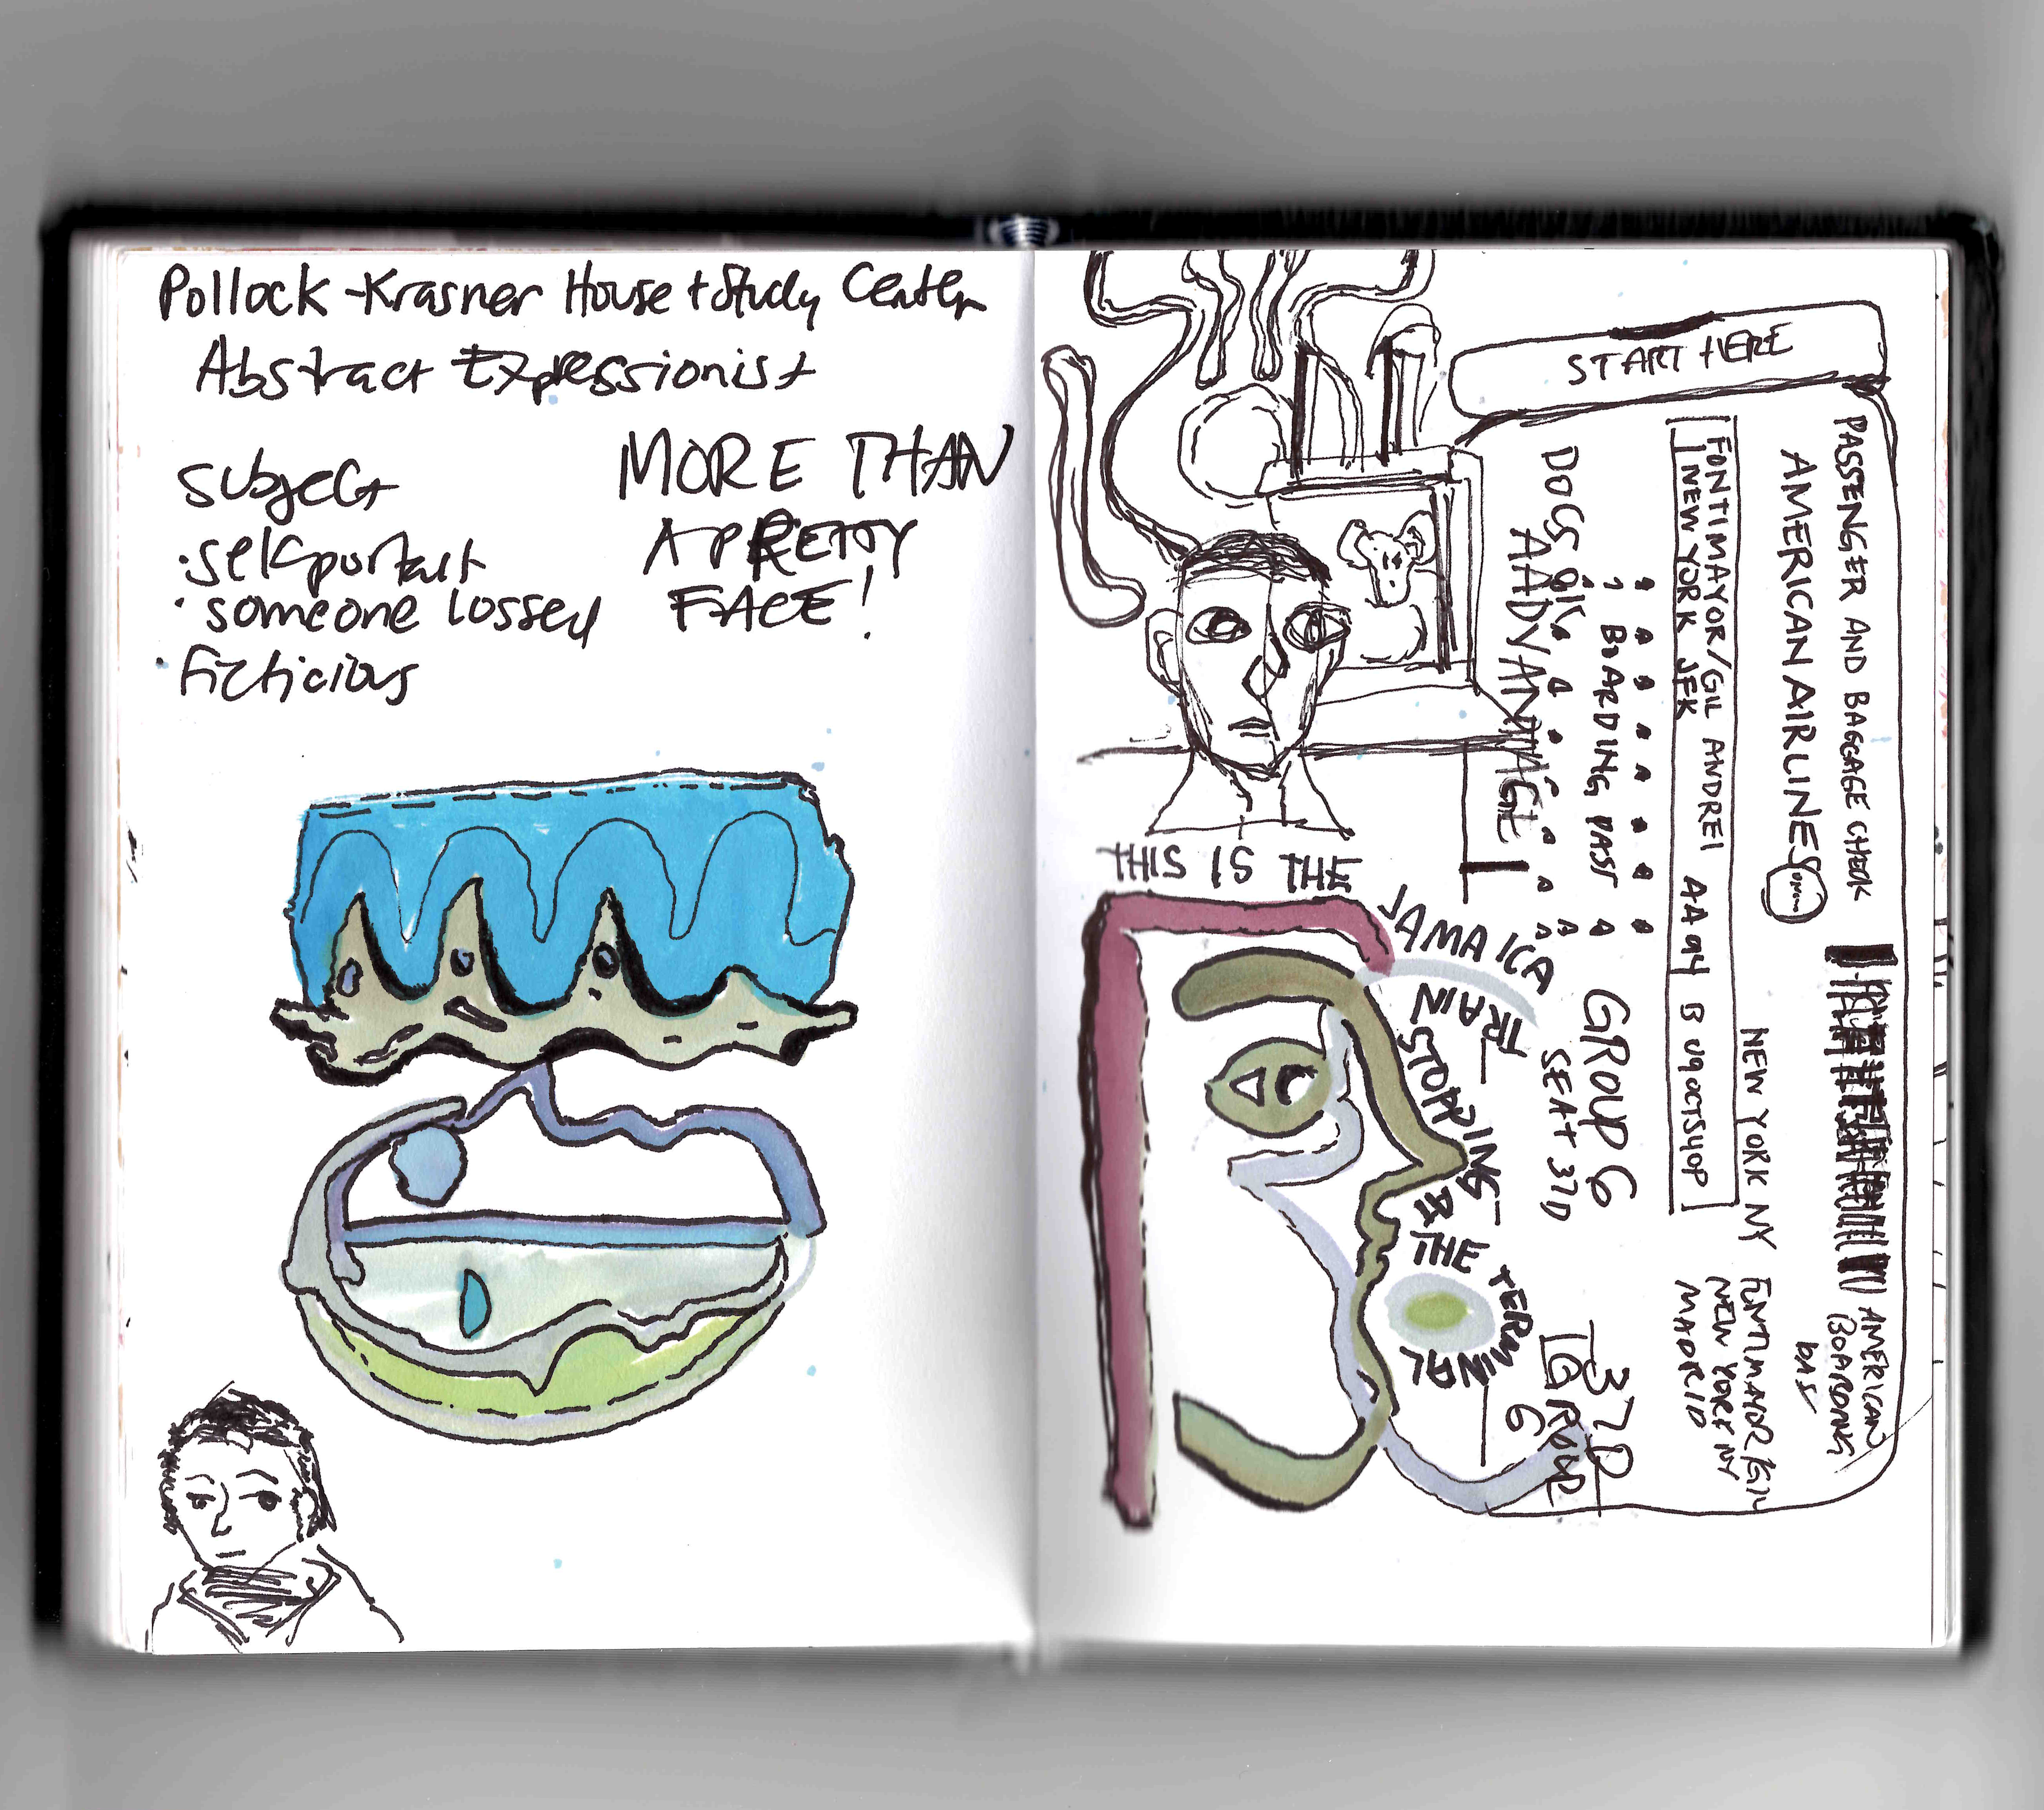 Pollock-Krasner House + Study Center
Abstract Expressionist
Subject
• self portrait
• someone lossed
• ficticious
MORE THAN
A PRETTY
FACE!
START HERE
PASSENGER AND BAGGAGE CHECK
AMERICAN AIRLINES
NEW YORK NY
FONTIMAYOR/GIL ANDREI AA94 B 09OCT540P
NEW YORK JFK
BOARDING PASS
GROUP 6
SEAT 37D
AADVANTAGE
AMERICAN
BOARDING
PAS
FONTIMAYOR/GIL
NEW YORK NY
MADRID
37D
GROUP
6
THIS IS THE
JAMAICA
TRAIN
STOPPING
THE TERMINAL